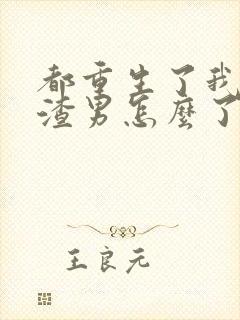 都重生了我
渣男怎麼了
王良元